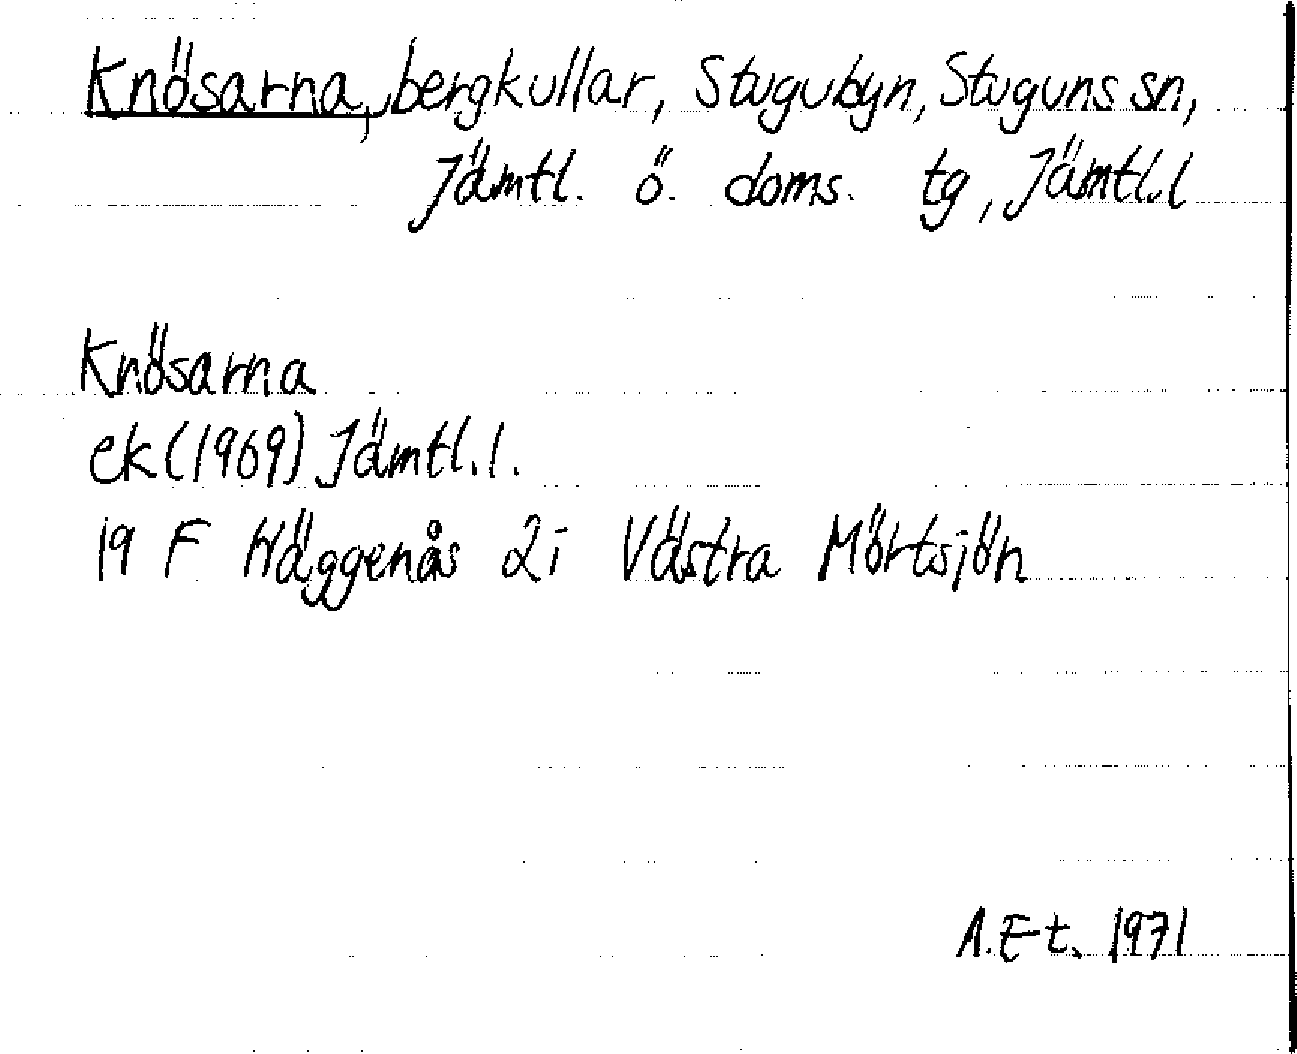 Knösarna, bergkullar, Stugubyn, Stuguns sn,
Jämtl. ö. doms. tg, Jämtl.l
Knösarna
ek (1969) Jämtl.l.
19 F Häggenås 2i Västra Mörtsjön
A.E-t. 1971